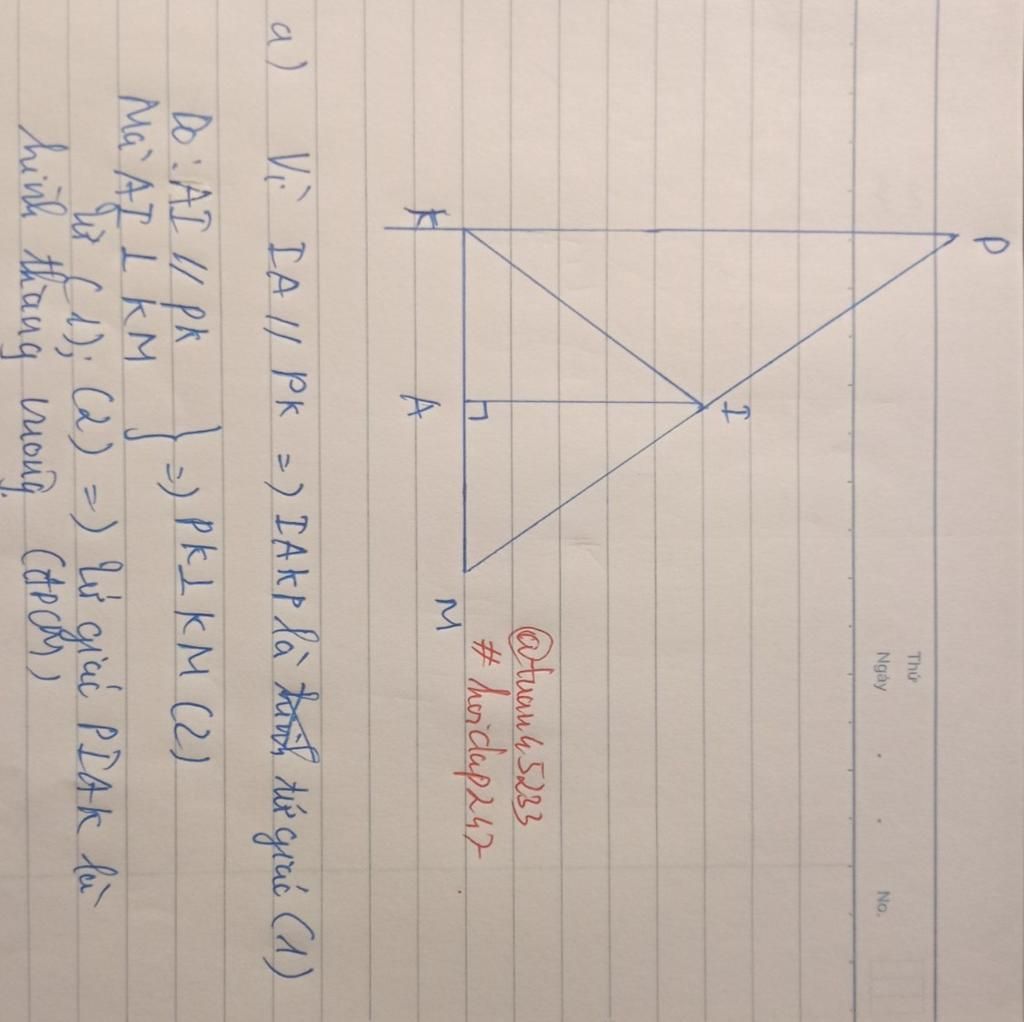 Thứ
Ngày . . No.
P
I
K
A
M
@tuan45233
#hoidap247
a) Vì IA // PK => IAKP là tứ giác (1)
Do: AI // PK
Mà AI ⊥ KM } => PK ⊥ KM (2)
Từ (1); (2) => tứ giác PIAK là
hình thang vuông (ĐPCM)